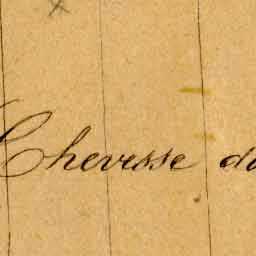 Chevesse du